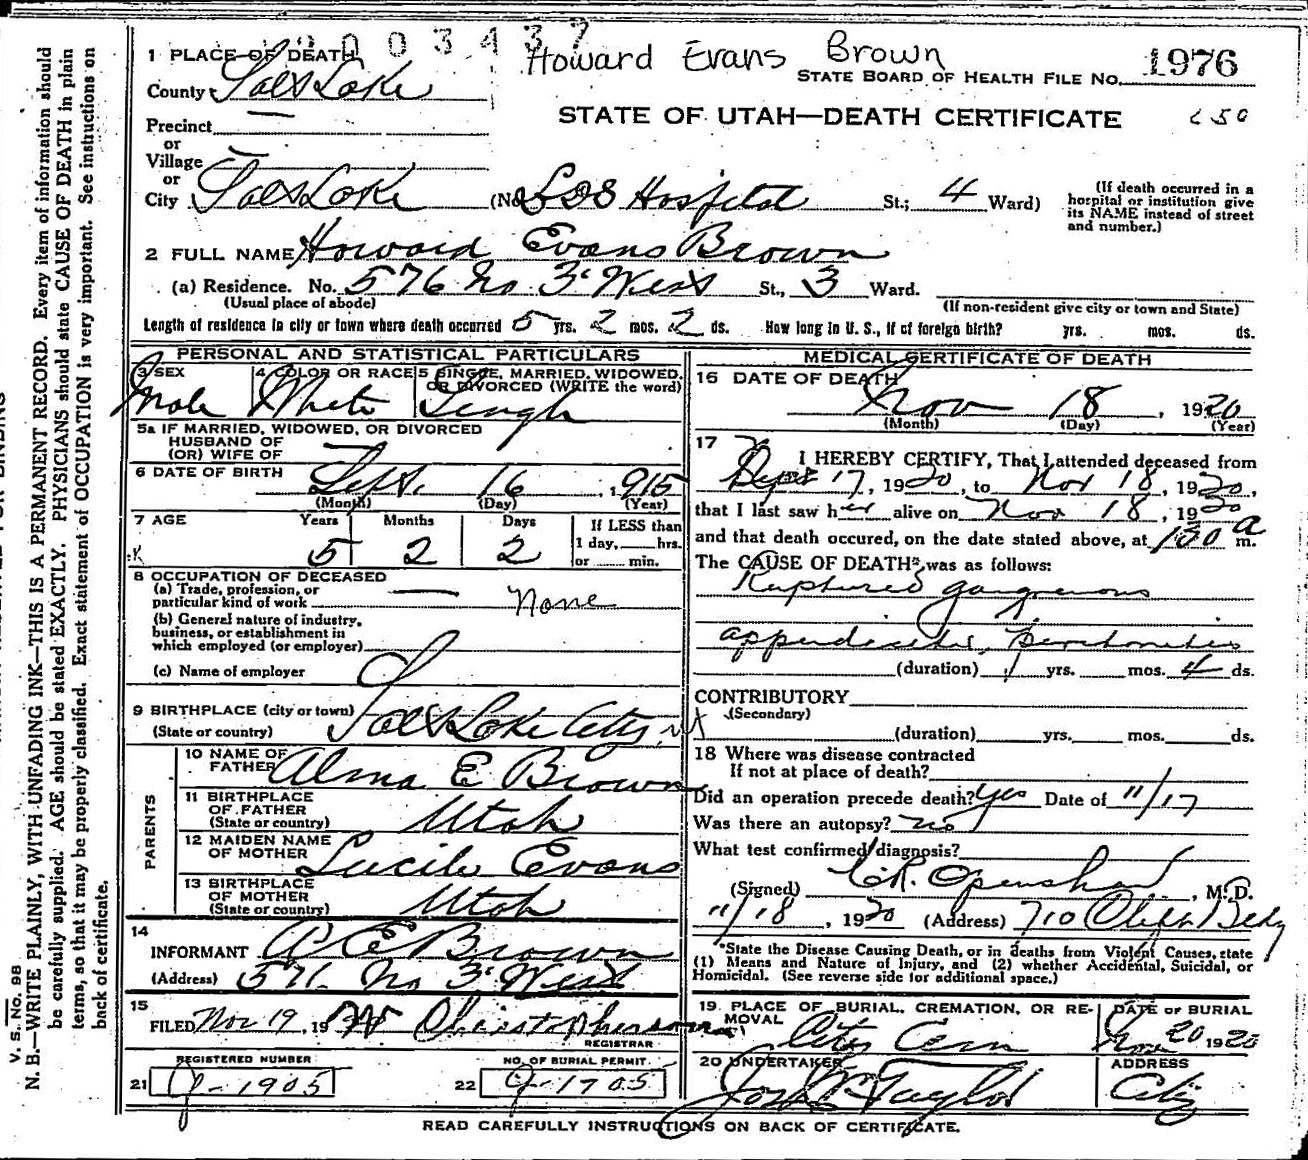 003437
Howard Evans Brown
1 PLACE OF DEATH
STATE BOARD OF HEALTH FILE NO. 1976
County Salt Lake
STATE OF UTAH—DEATH CERTIFICATE
Precinct
or
Village
or
City Salt Lake (No. LDS Hospital St.; 4 Ward)
(If death occurred in a hospital or institution give its NAME instead of street and number.)
2 FULL NAME Howard Evans Brown
(a) Residence. No. 576 No 3d West St., 3 Ward.
(Usual place of abode) (If non-resident give city or town and State)
Length of residence in city or town where death occurred 5 yrs. 2 mos. 2 ds. How long in U. S., if of foreign birth? yrs. mos. ds.
PERSONAL AND STATISTICAL PARTICULARS
3 SEX Male
4 COLOR OR RACE White
5 SINGLE, MARRIED, WIDOWED, OR DIVORCED (WRITE the word) Single
5a IF MARRIED, WIDOWED, OR DIVORCED
HUSBAND OF
(OR) WIFE OF
6 DATE OF BIRTH Sept. 16, 1915
(Month) (Day) (Year)
7 AGE Years 5 Months 2 Days 2
If LESS than 1 day, hrs. or min.
8 OCCUPATION OF DECEASED
(a) Trade, profession, or particular kind of work None
(b) General nature of industry, business, or establishment in which employed (or employer)
(c) Name of employer
9 BIRTHPLACE (city or town) Salt Lake City, Ut
(State or country)
PARENTS
10 NAME OF FATHER Alma E Brown
11 BIRTHPLACE OF FATHER (State or country) Utah
12 MAIDEN NAME OF MOTHER Lucile Evans
13 BIRTHPLACE OF MOTHER (State or country) Utah
14 INFORMANT A E Brown
(Address) 576 No 3d West
15 FILED Nov 19, 19 Christopherson
REGISTRAR
21 REGISTERED NUMBER 1905
22 NO. OF BURIAL PERMIT. 1705
MEDICAL CERTIFICATE OF DEATH
16 DATE OF DEATH
Nov 18, 1920
(Month) (Day) (Year)
17 I HEREBY CERTIFY, That I attended deceased from
17, 1920, to Nov 18, 1920,
that I last saw her alive on Nov 18, 1920
and that death occured, on the date stated above, at 130 a m.
The CAUSE OF DEATH* was as follows:
Ruptured gangrenous
appendicitis, peritonitis
(duration) yrs. mos. 4 ds.
CONTRIBUTORY
(Secondary)
(duration) yrs. mos. ds.
18 Where was disease contracted
If not at place of death?
Did an operation precede death? Yes Date of 11/17
Was there an autopsy? no
What test confirmed diagnosis?
(Signed) Openshaw, M. D.
11/18, 1920 (Address) 710 Clift Bldg
*State the Disease Causing Death, or in deaths from Violent Causes, state
(1) Means and Nature of Injury, and (2) whether Accidental, Suicidal, or
Homicidal. (See reverse side for additional space.)
19 PLACE OF BURIAL, CREMATION, OR REMOVAL City Cem
DATE OF BURIAL Nov 20 1920
20 UNDERTAKER Taylor
ADDRESS City
READ CAREFULLY INSTRUCTIONS ON BACK OF CERTIFICATE.
V. S. No. 98
N. B.—WRITE PLAINLY, WITH UNFADING INK—THIS IS A PERMANENT RECORD. Every item of information should
be carefully supplied. AGE should be stated EXACTLY. PHYSICIANS should state CAUSE OF DEATH in plain
terms, so that it may be properly classified. Exact statement of OCCUPATION is very important. See instructions on
back of certificate.